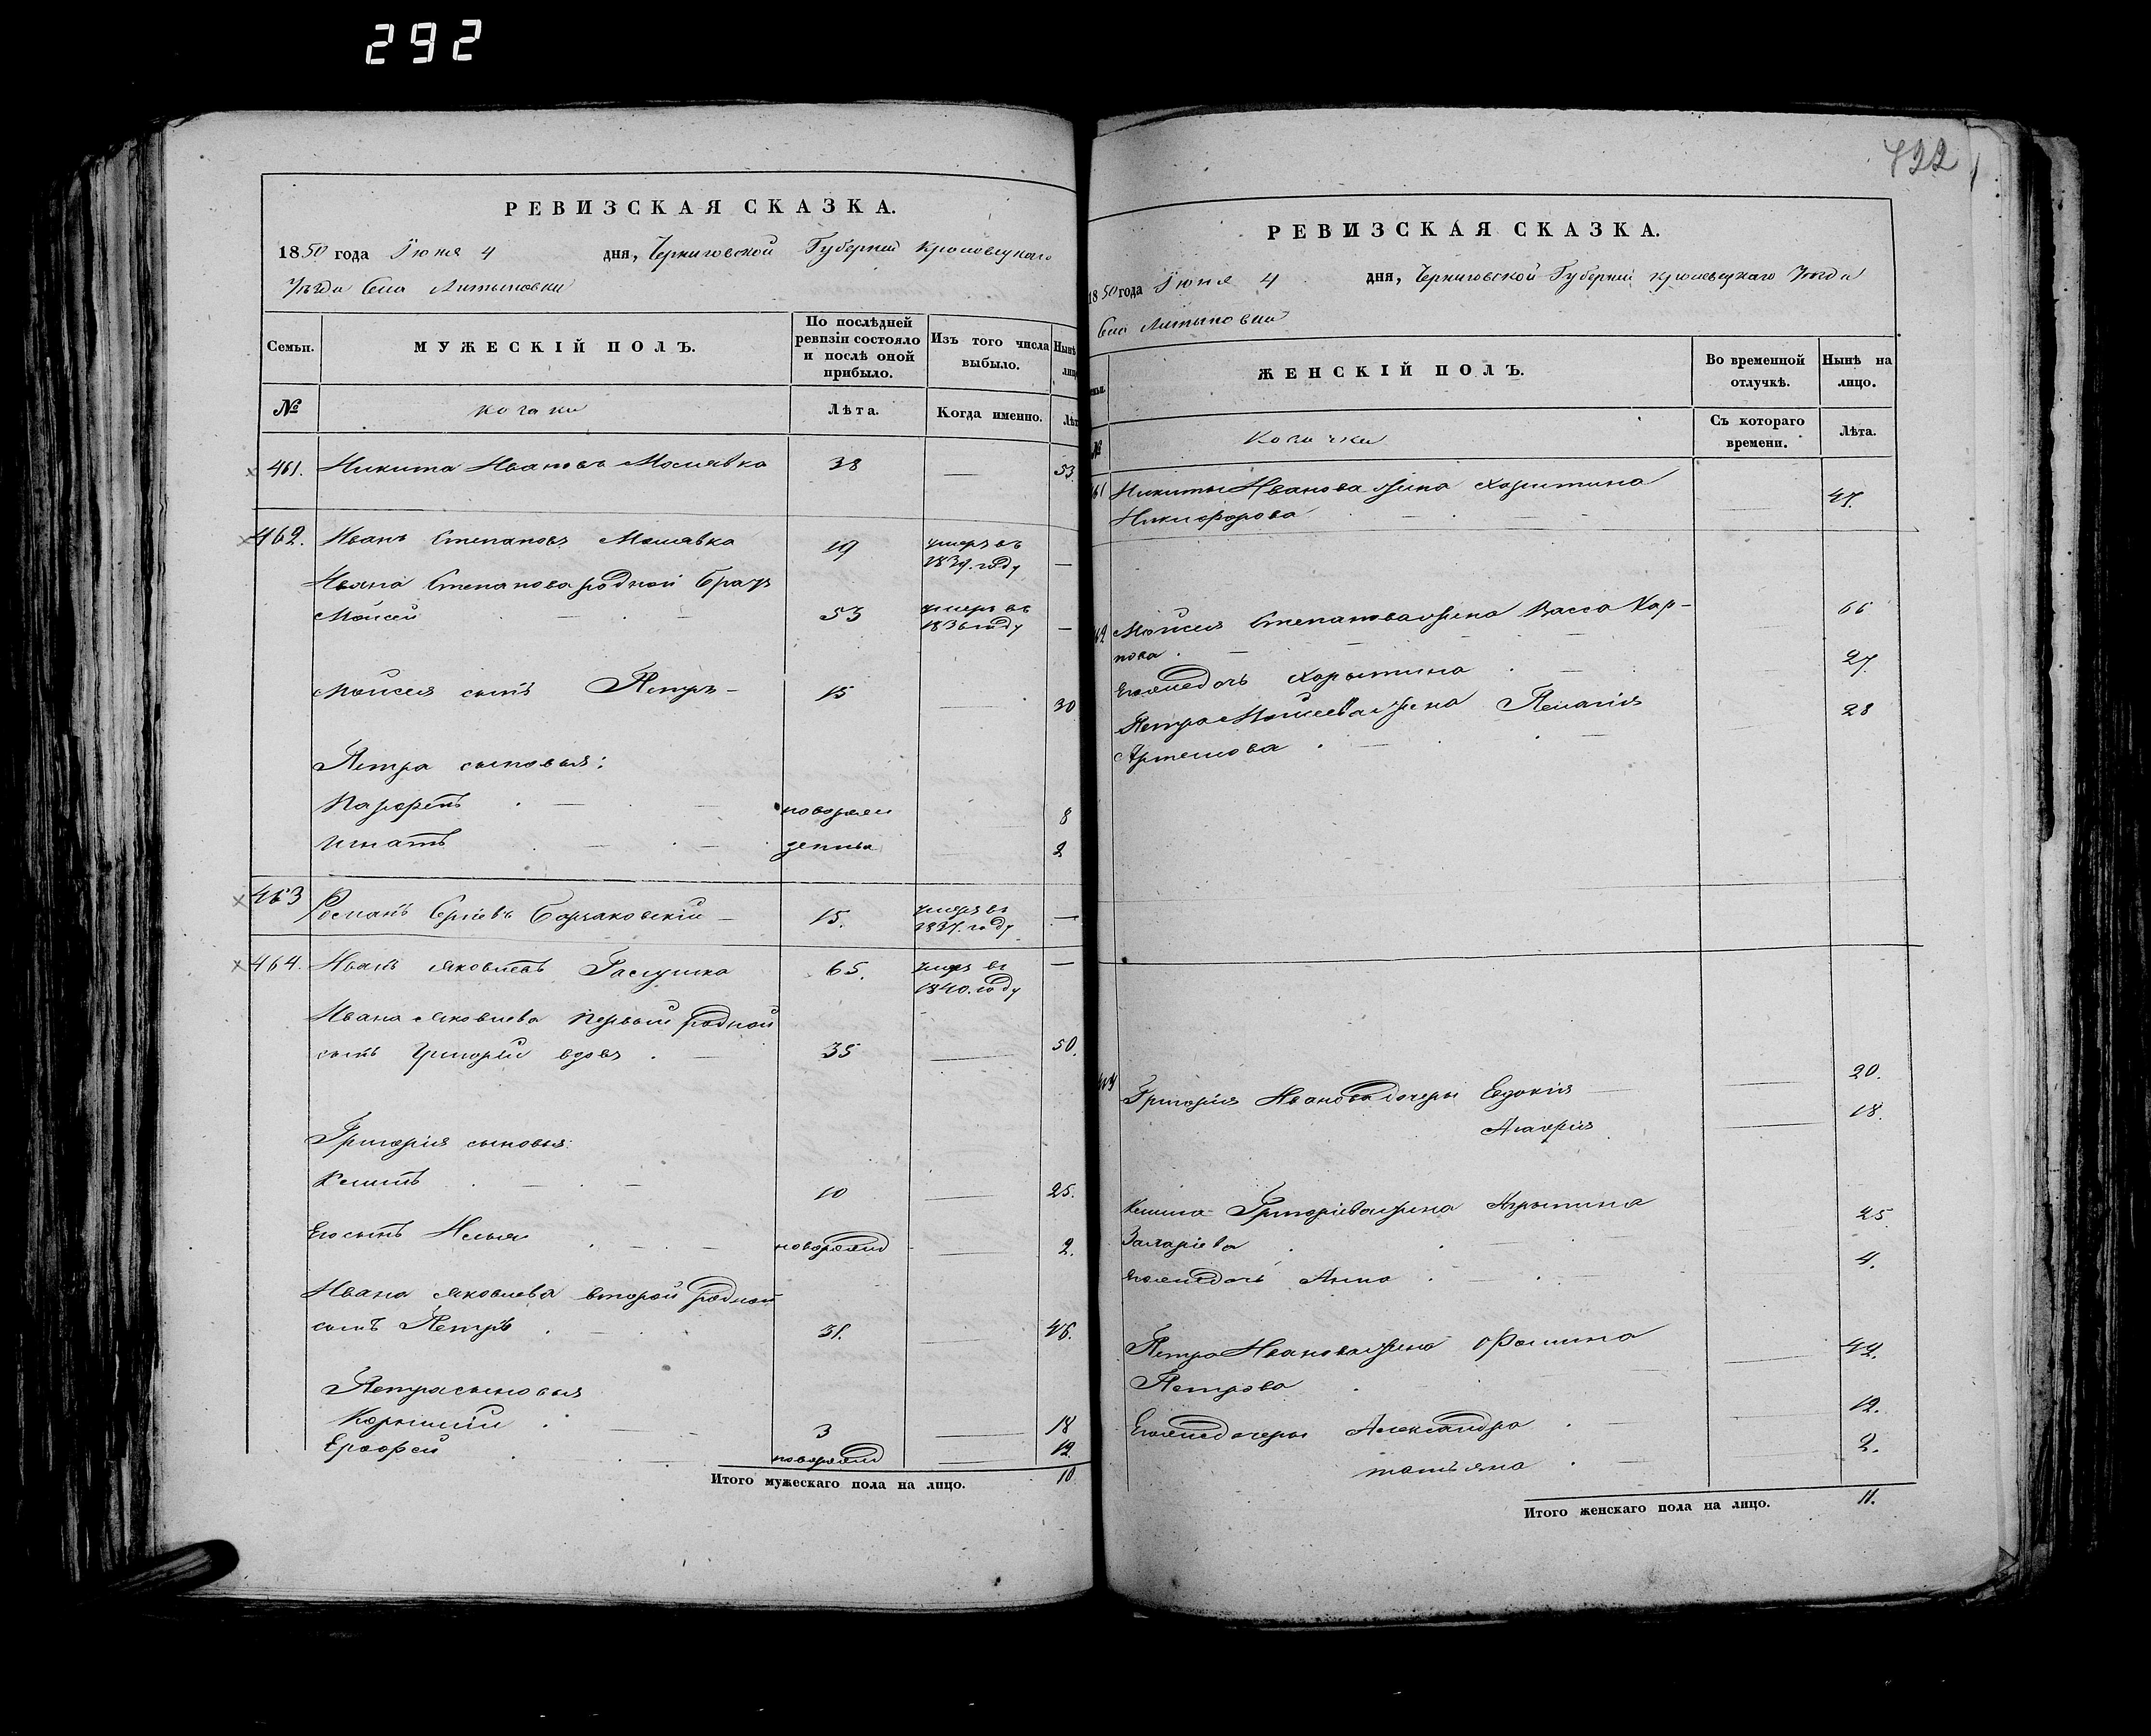 292
РЕВИЗСКАЯ СКАЗКА.
1850 года Іюня 4 дня, Черниговской Губерніи Кролевецкаго
Уѣзда Села
Семьи.
МУЖЕСКІЙ ПОЛЪ.
По послѣдней ревизіи состояло и послѣ оной прибыло.
Изъ того числа выбыло.
Нынѣ
лиц
№
козаки
Лѣта.
Когда именно.
Лѣт
461. Никита Ивановъ Малявка 38 — 53.
462. Иванъ Степановъ Малявка 19 умеръ въ
году —
Ивана Степанова родной братъ
Моисей 53 умеръ въ
1836 году —
Моисея сынъ Петръ — 15 — 30
Петра сыновья:
Парфенъ новорож 8
Игнатъ денны 2
463 Романъ Сергіевъ 15. умеръ въ
году —
464. Иванъ Яковлевъ 65. умеръ въ —
1840. году
Ивана Яковлева первый родной
сынъ Григорій вдовъ 35 — 50.
Григорія сыновья:
Климъ 10 — 25.
Его сынъ Илья новорожд — 2.
Ивана Яковлева второй родной
сынъ Петръ 31. — 46.
Петра сыновья
Корнилій 3 — 18
Ерофей новорожд — 12
Итого мужескаго пола на лицо. 10
422
РЕВИЗСКАЯ СКАЗКА.
1850 года Іюня 4 дня, Черниговской Губерніи Кролевецкаго Уѣзда
Села
ЖЕНСКІЙ ПОЛЪ.
Во временной отлучкѣ.
Нынѣ на лицо.
№
Козачки
Съ котораго времени.
Лѣта.
61 Никиты Иванова жена Харитина
Никифорова — 47.
62 Моисея Степанова жена Васса Кар-
пова 66
Его же дочь Харитина 27.
Петра Моисеева жена Пелагія 28
Артемова
Григорія Иванова дочери Евдокія — 20.
— 18.
Клима Григоріева жена
Захаріева 25
Его же дочь Анна 4.
Петра Иванова жена Фомина
Петрова — 42.
Его же дочери Александра — 12.
татьяна 2.
Итого женскаго пола на лицо. 11.